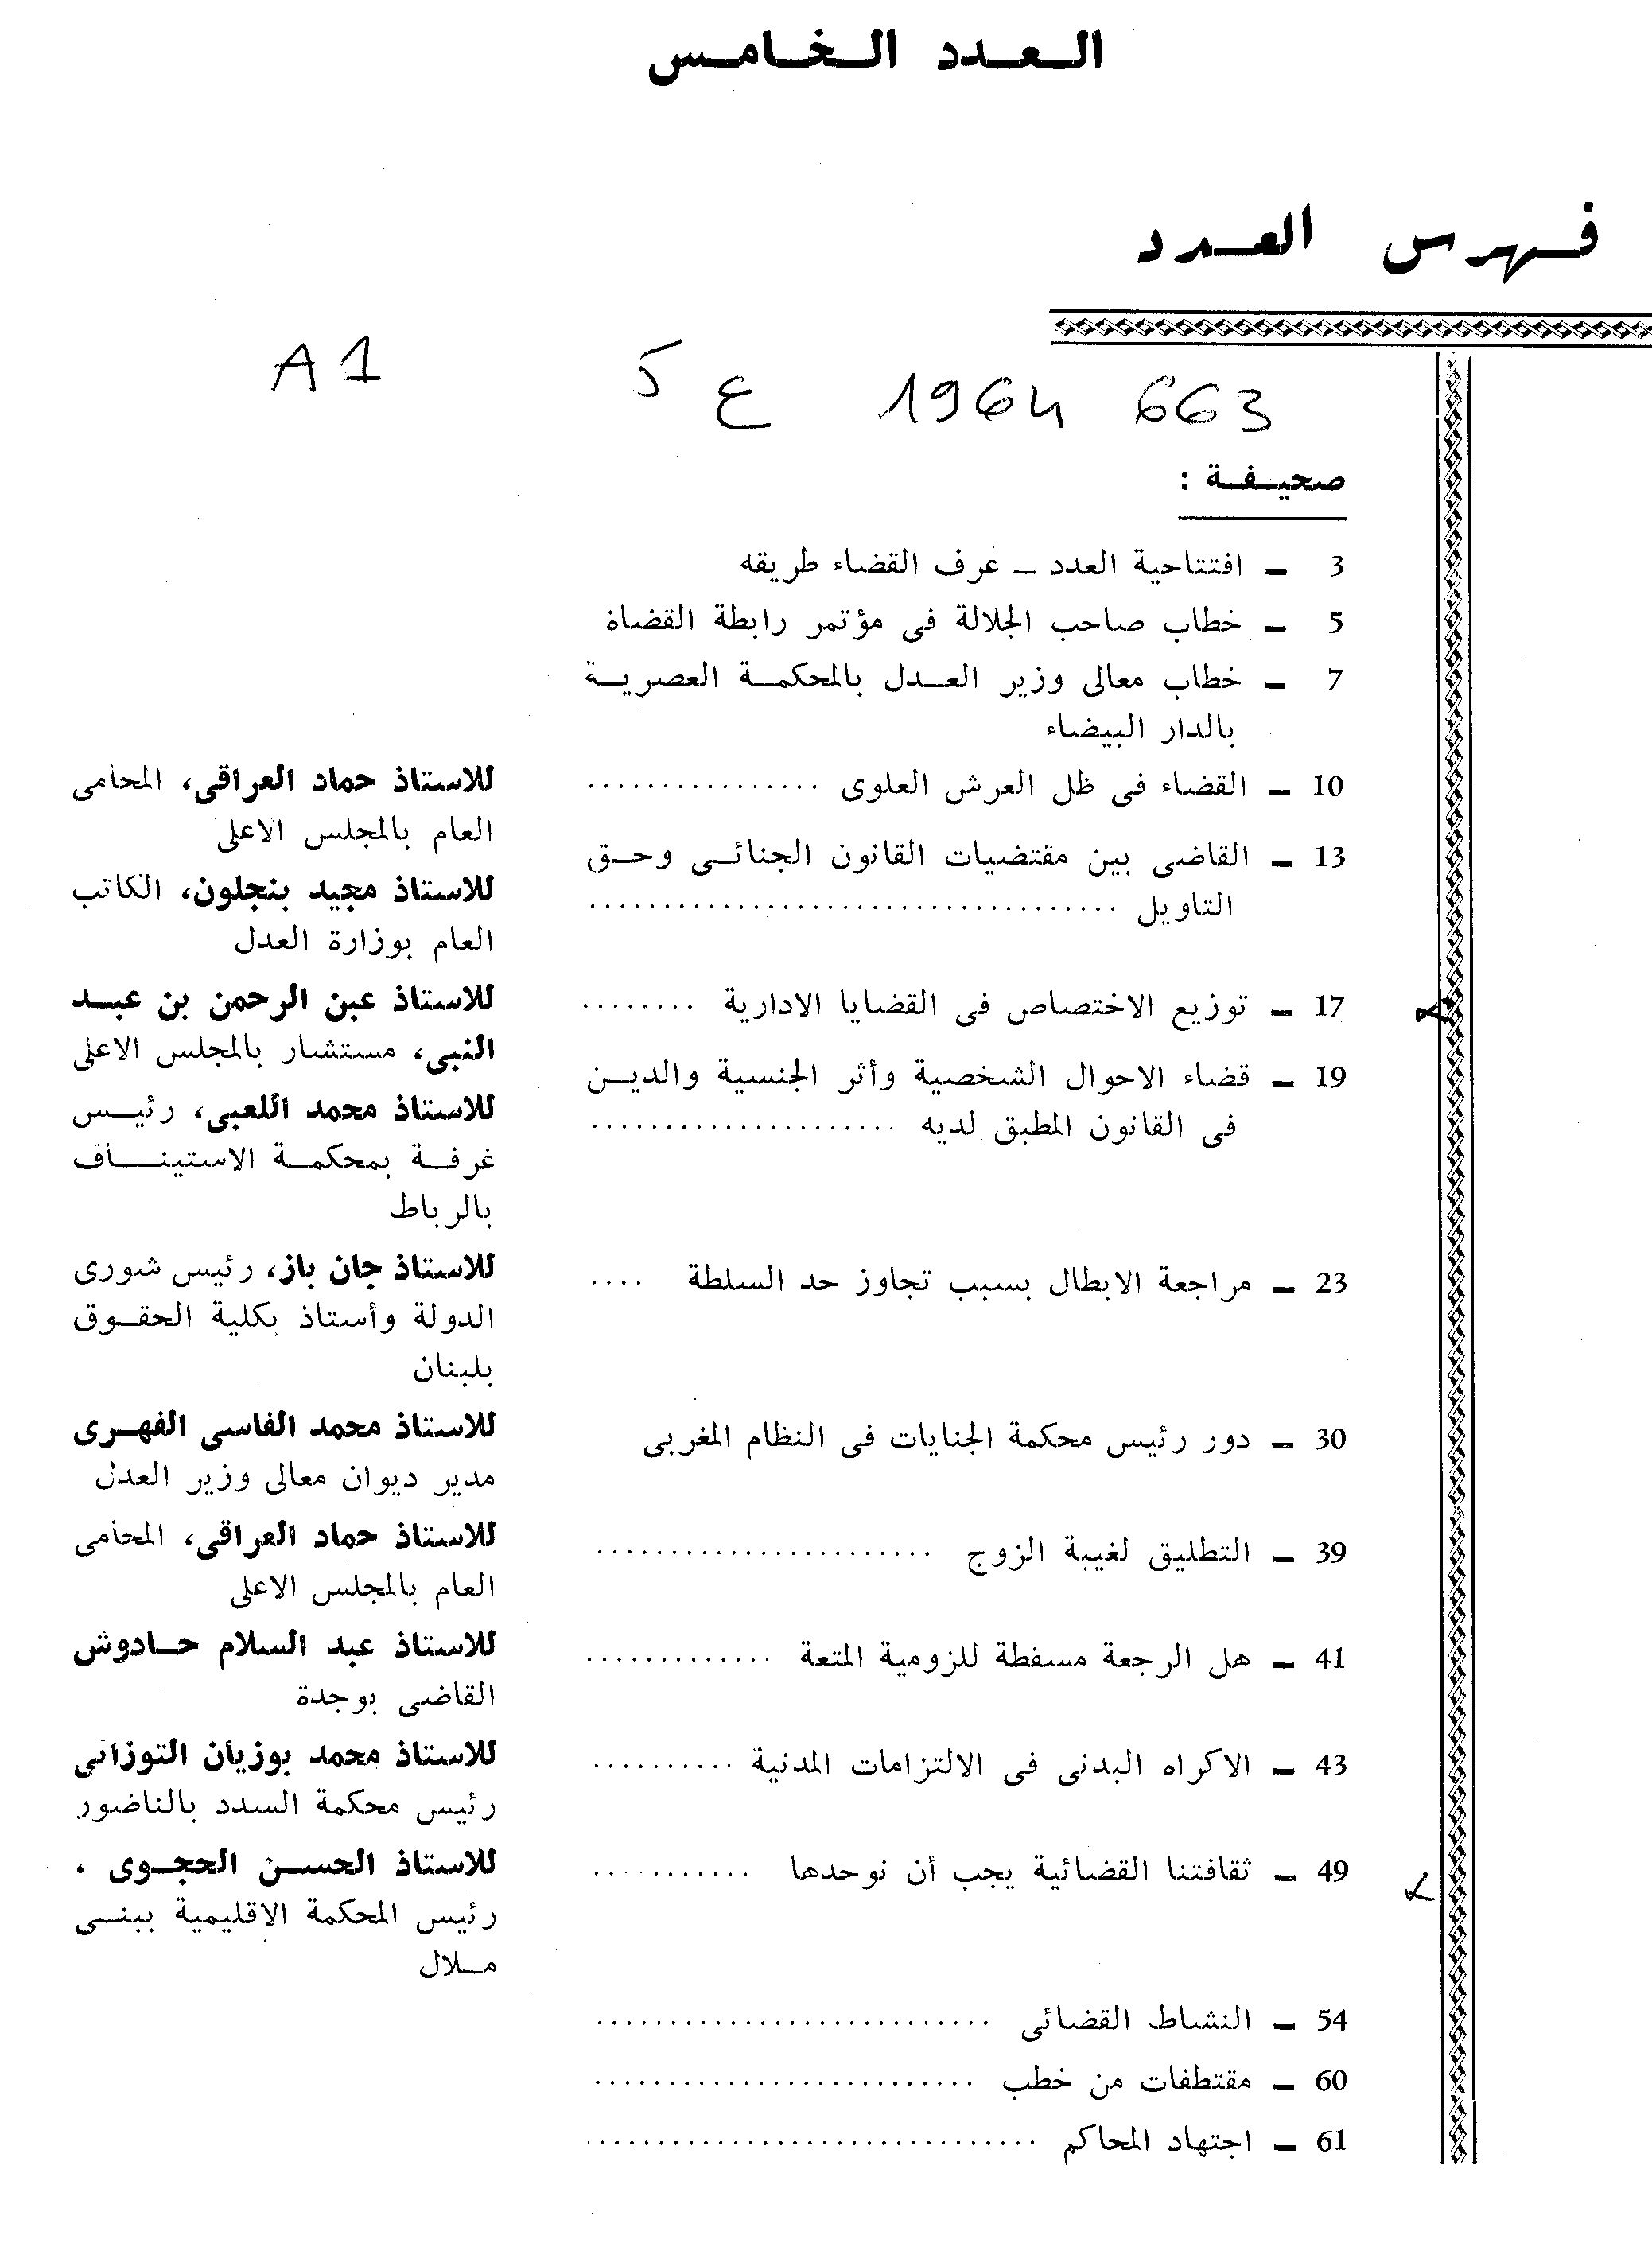 العدد الخامس
فهرس العدد
A1
663 1964 ع 5
صحيفة :
3 – افتتاحية العدد – عرف القضاء طريقه
5 – خطاب صاحب الجلالة فى مؤتمر رابطة القضاة
7 – خطاب معالى وزير العدل بالمحكمة العصرية
بالدار البيضاء
10 – القضاء فى ظل العرش العلوى ................
للاستاذ حماد العراقى، المحامى
العام بالمجلس الاعلى
13 – القاضى بين مقتضيات القانون الجنائى وحق
التاويل ....................................
للاستاذ مجيد بنجلون، الكاتب
العام بوزارة العدل
17 – توزيع الاختصاص فى القضايا الادارية ........
للاستاذ عبن الرحمن بن عبد
النبى، مستشار بالمجلس الاعلى
19 – قضاء الاحوال الشخصية وأثر الجنسية والدين
فى القانون المطبق لديه .....................
للاستاذ محمد اللعبى، رئيس
غرفة بمحكمة الاستيناف
بالرباط
23 – مراجعة الابطال بسبب تجاوز حد السلطة ....
للاستاذ جان باز، رئيس شورى
الدولة وأستاذ بكلية الحقوق
بلبنان
30 – دور رئيس محكمة الجنايات فى النظام المغربى
للاستاذ محمد الفاسى الفهرى
مدير ديوان معالى وزير العدل
39 – التطليق لغيبة الزوج .......................
للاستاذ حماد العراقى، المحامى
العام بالمجلس الاعلى
41 – هل الرجعة مسقطة للزومية المتعة .............
للاستاذ عبد السلام حادوش
القاضى بوجدة
43 – الاكراه البدنى فى الالتزامات المدنية ..........
للاستاذ محمد بوزيان التوزانى
رئيس محكمة السدد بالناضور
49 – ثقافتنا القضائية يجب أن نوحدها ...........
للاستاذ الحسن الحجوى ،
رئيس المحكمة الاقليمية ببنى
ملال
54 – النشاط القضائى ...........................
60 – مقتطفات من خطب ..........................
61 – اجتهاد المحاكم ...............................